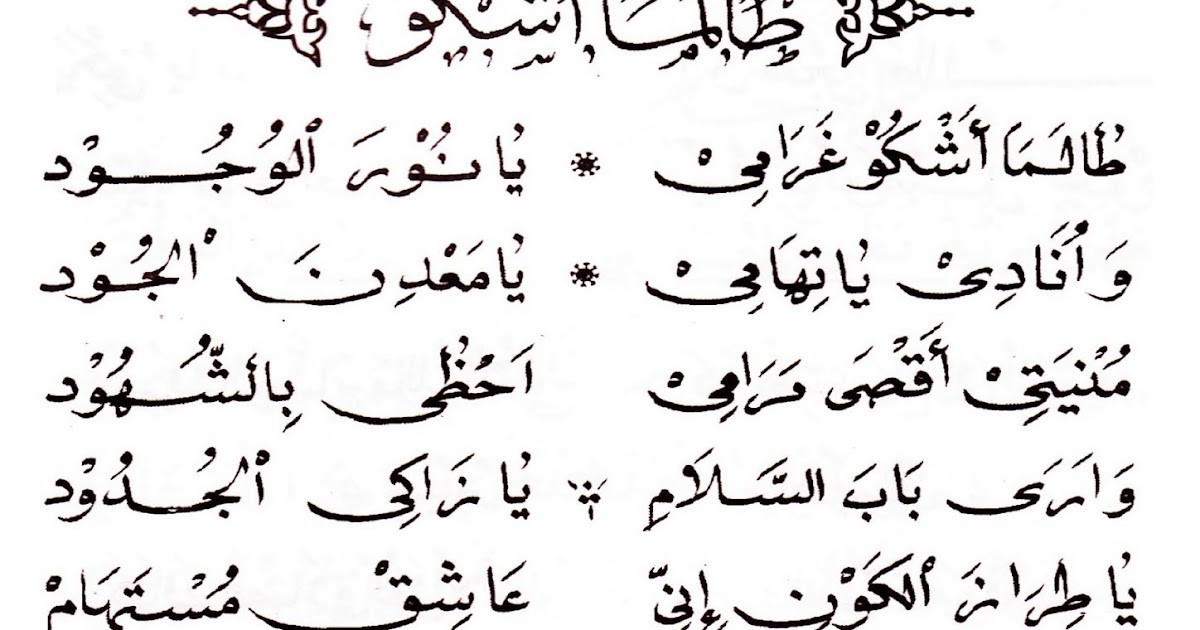 طَالَمَا أَشْكُوْ
طَالَمَا أَشْكُوْ غَرَامِيْ * يَا نُوْرَ الْوُجُوْد
وَ اُنَادِىْ يَا تِهَامِيْ * يَا مَعْدِنَ الْجُوْد
مُنْيَتِيْ أَقْصَى مَرَامِيْ اَحْظٰى بِالشُّهُوْد
وَ ارَى بَابَ السَّلَامِ * يَا زَاكِى الْجُدُوْد
يَا طِرَازَ الْكَوْنِ إِنِّيْ عَاشِقْ مُسْتَهَامْ